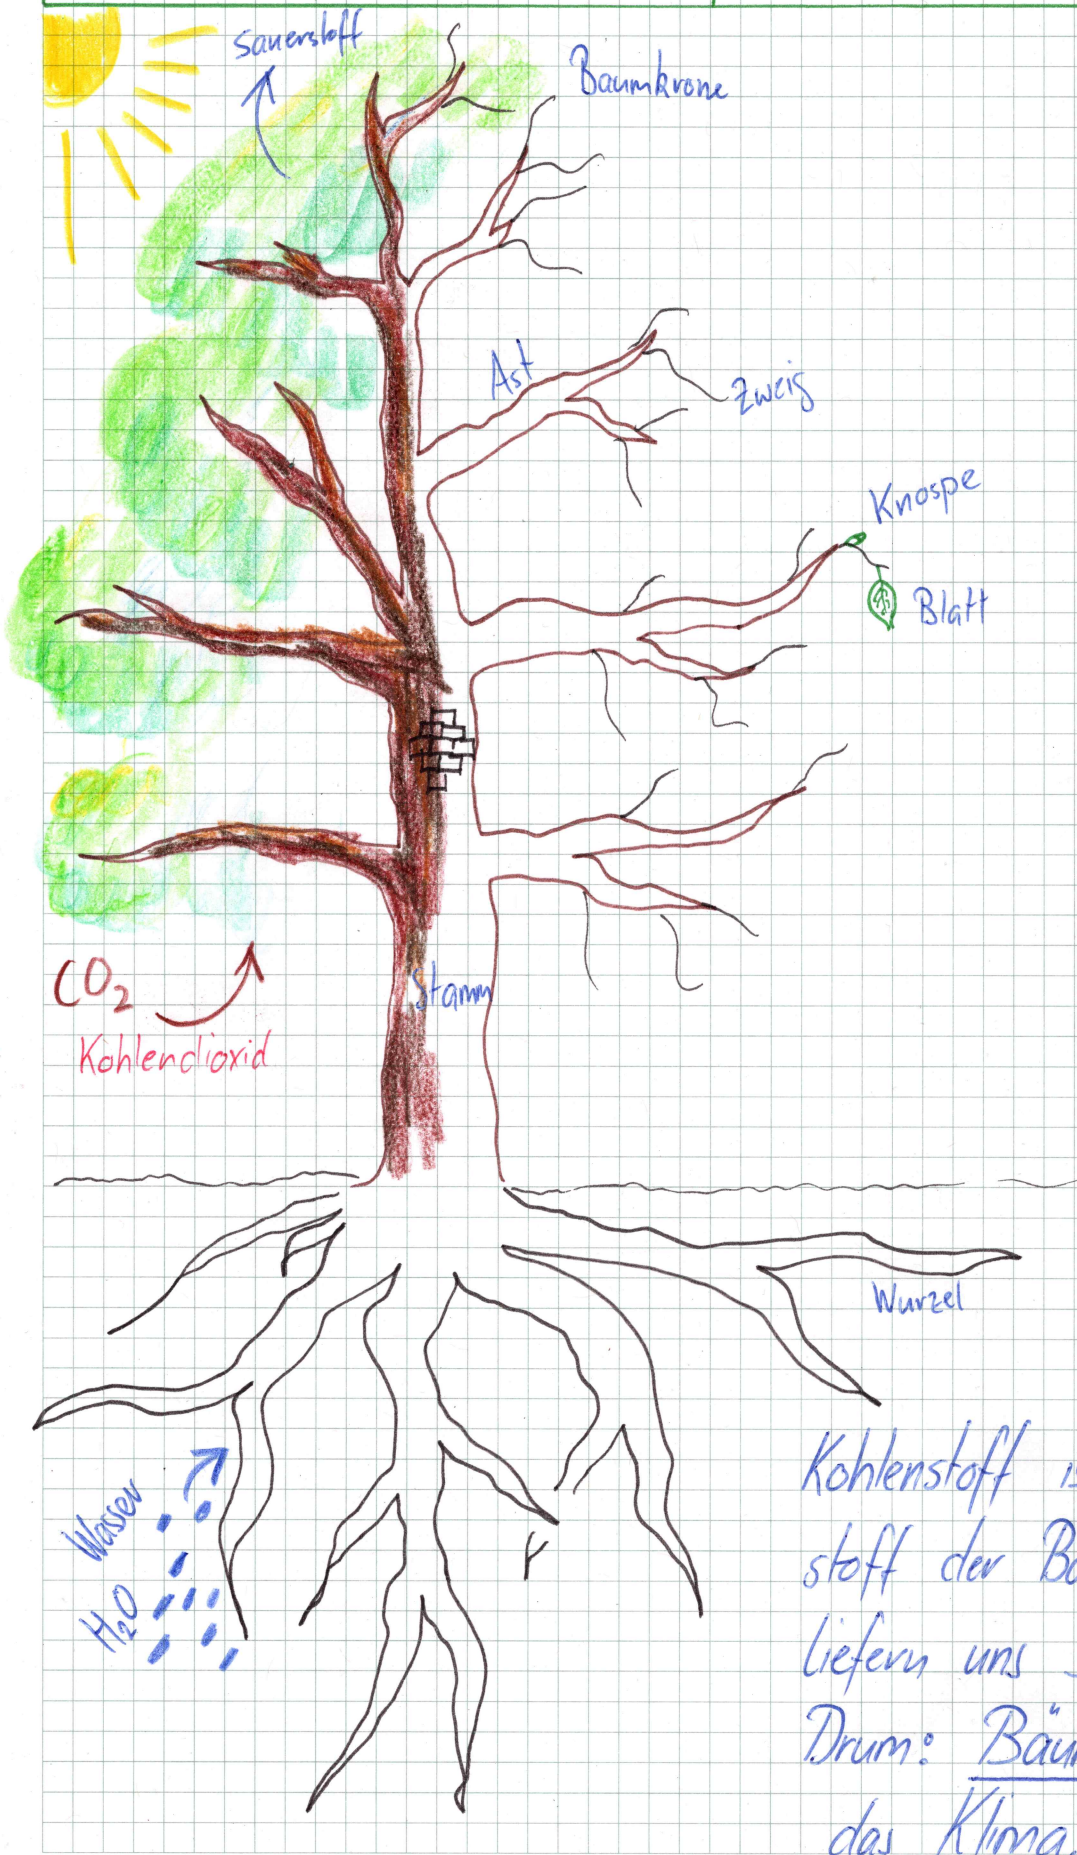 Sauerstoff
Baumkrone
Ast
Zweig
Knospe
Blatt
CO₂
Kohlendioxid
Stamm
Wurzel
Wasser
H₂O
Kohlenstoff
stoff der
liefern uns
Drum:
das Klima